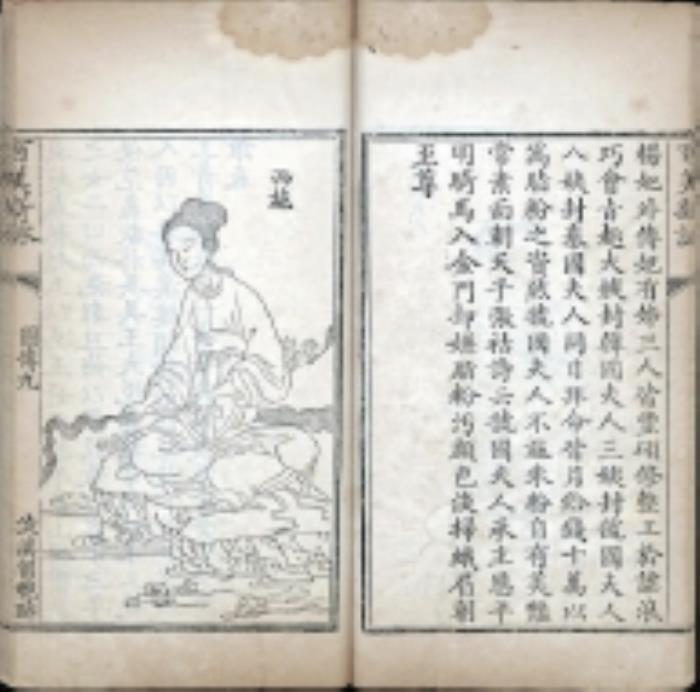 百美新詠
楊妃外傳妃有姊三人皆豐碩修整工於謔浪
巧會音趣大姨封韓國夫人三姨封虢國夫人
八姨封秦國夫人同日拜命皆月給錢十萬以
為脂粉之資然虢國夫人不施朱粉自有美艷
常素面朝天子張祜詩云虢國夫人承主恩平
明騎馬入金門却嫌脂粉汚顏色淡掃蛾眉朝
至尊
西施
百美新詠
圖傳九